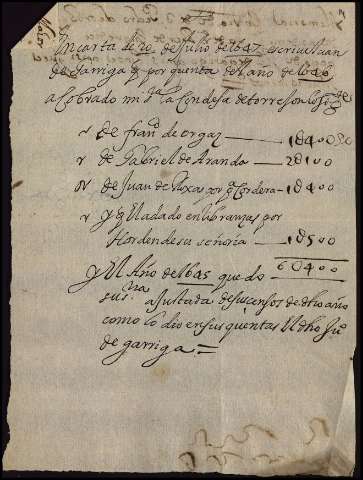 Nota
En carta de 20 de Julio de 1647 escriue Juan
de Garriga q por quenta del año de 1646
a Cobrado mi sª la Condesa de torres on los sigtes
de franco de ergaz 1U400
de Gabriel de Aranda 2U100
de Juan de Roxas por q Cordera 1U400
y q Ua dado en libranzas por
Horden de su señoria 1U500
6U400
y el Año de 1645 quedo
su sria ajustada de sus censos de dho año
como lo dio en sus quentas el dho Ju
de garriga